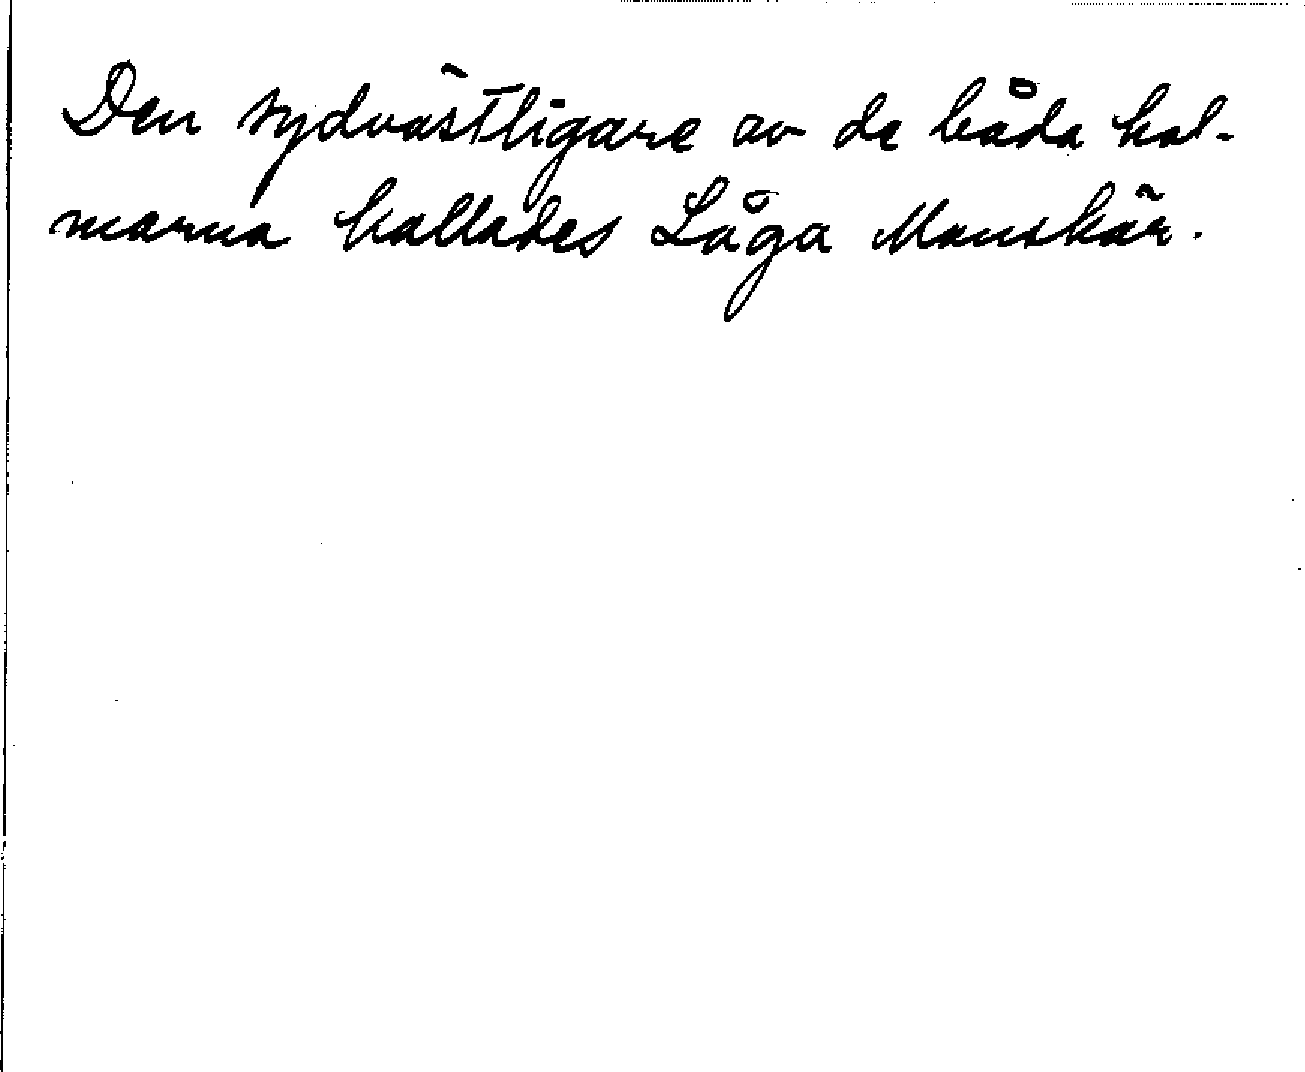 Den sydvästligare av de båda hol-
marna kallades Låga Manskär.